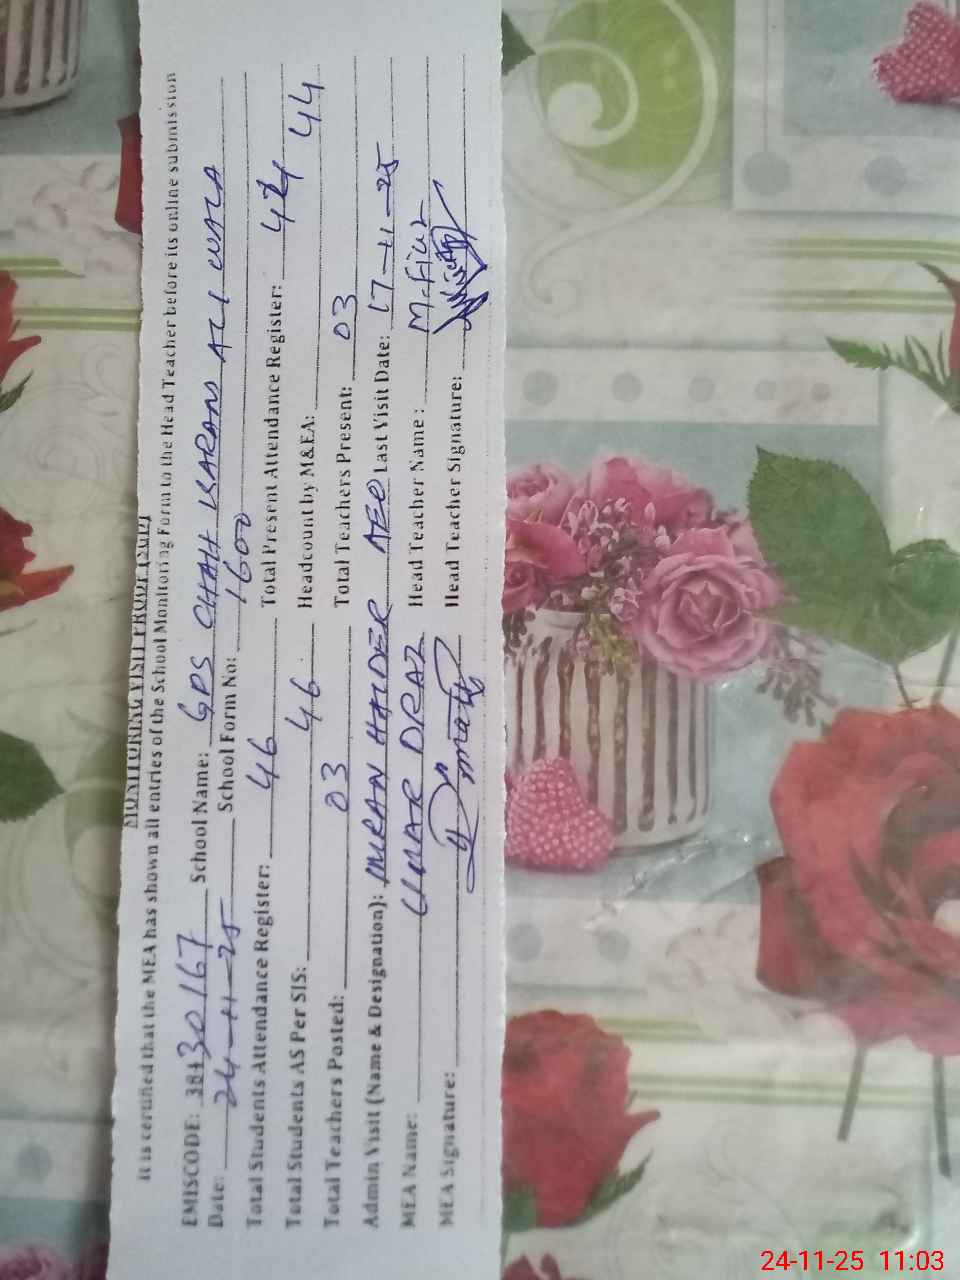 MONITORING VISIT PROOF [SOP]
It is certified that the MEA has shown all entries of the School Monitoring Form to the Head Teacher before its online submission
EMISCODE: 38330167 School Name: GPS CHAH KARAM ALI WALA
Date: 24-11-25 School Form No: 1600
Total Students Attendance Register: 46 Total Present Attendance Register: 44
Total Students AS Per SIS: 46 Headcount by M&EA: 44
Total Teachers Posted: 03 Total Teachers Present: 03
Admin Visit (Name & Designation): IMRAN HAIDER AEO Last Visit Date: 17-11-25
MEA Name: UMAR DRAZ Head Teacher Name :
MEA Signature: Head Teacher Signature:
24-11-25 11:03